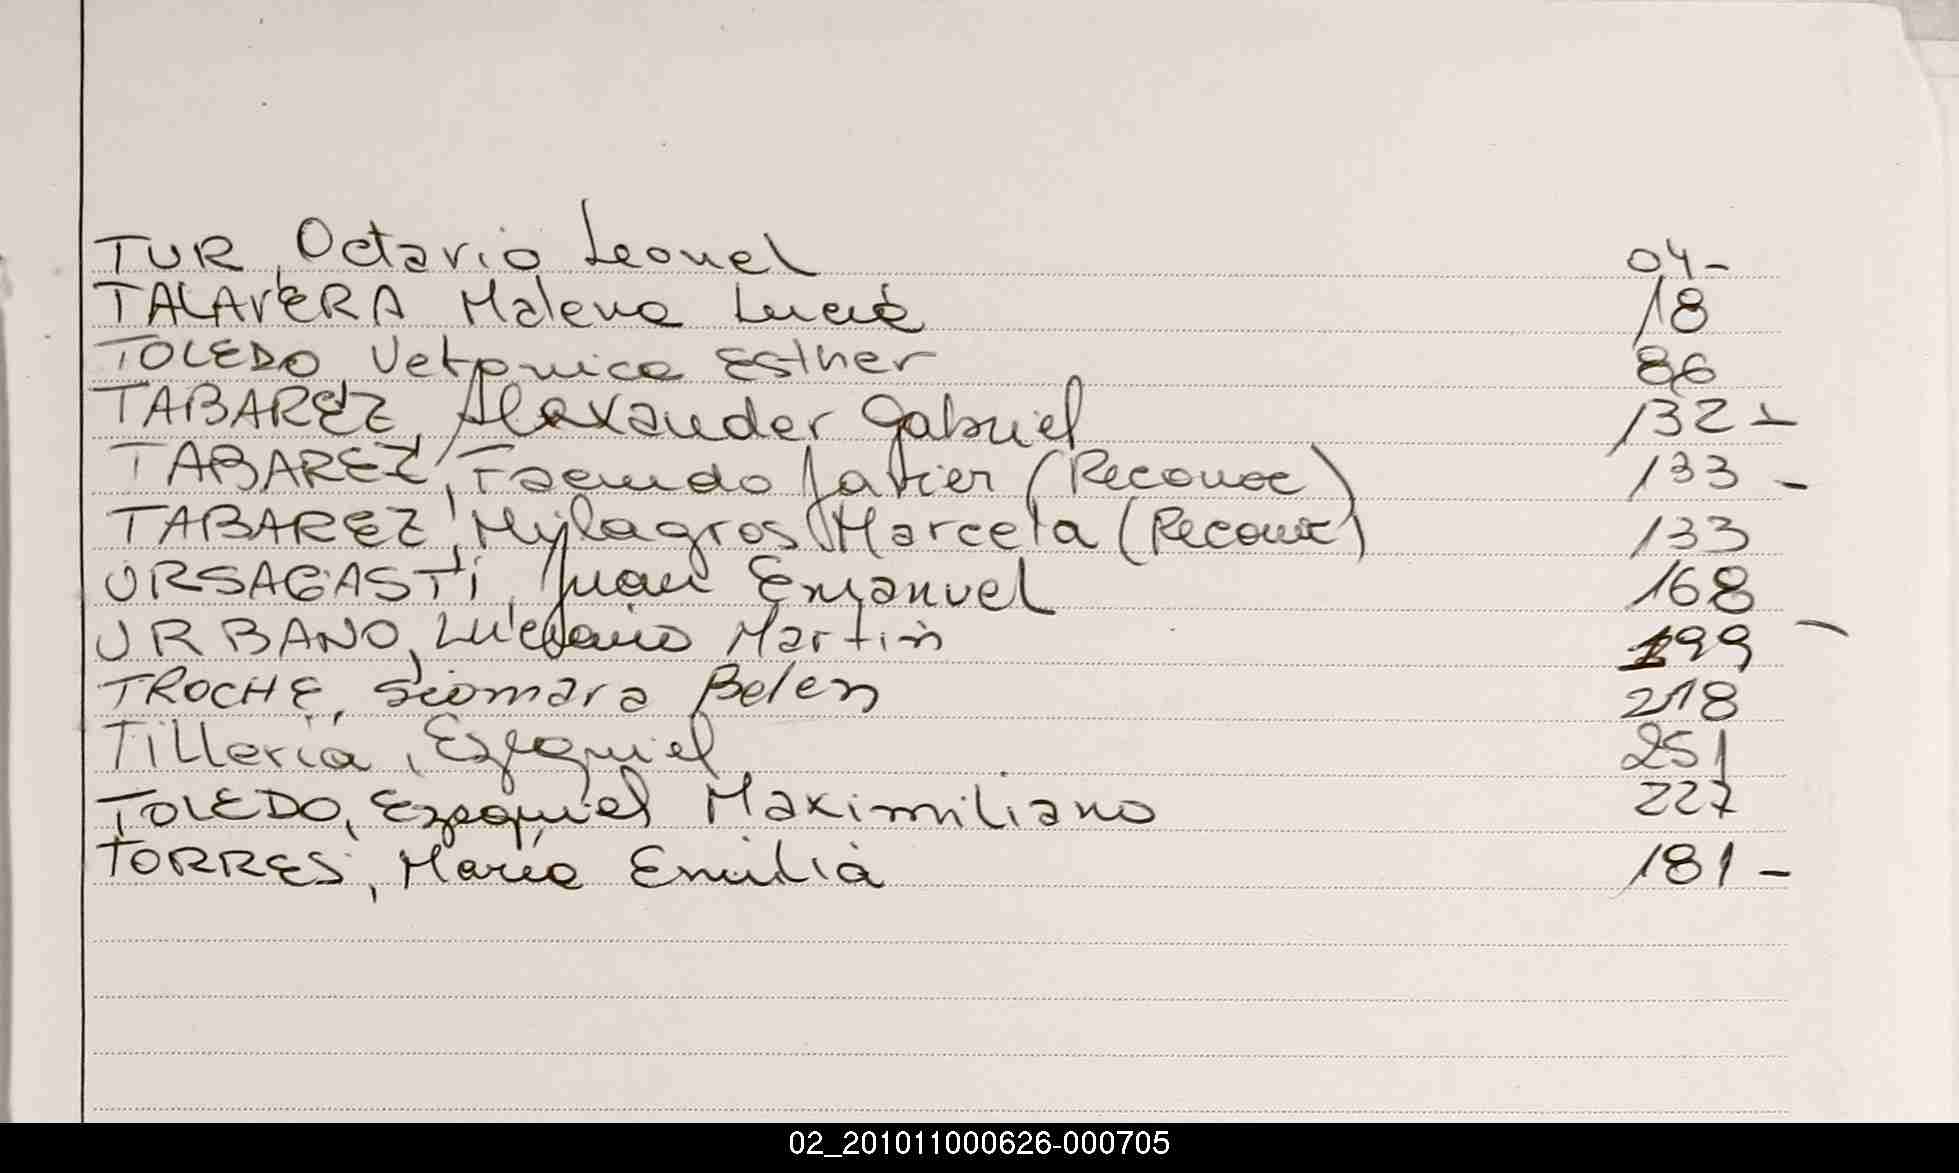 TUR, Octavio Leonel 04-
TALAVERA Malena Lucía 18
TOLEDO Veronica Esther 86
TABAREZ, Alexander Gabriel 132-
TABAREZ, Facundo Javier (Reconoc) 133-
TABAREZ, Mylagros Marcela (Reconoc) 133
URSAGASTI, Juan Emanuel 168
URBANO, Luciano Martin 199-
TROCHE, Siomara Belen 218
Tilleria, Ezequiel 251
TOLEDO, Ezequiel Maximiliano 227
TORRES, María Emilia 181-
02_201011000626-000705